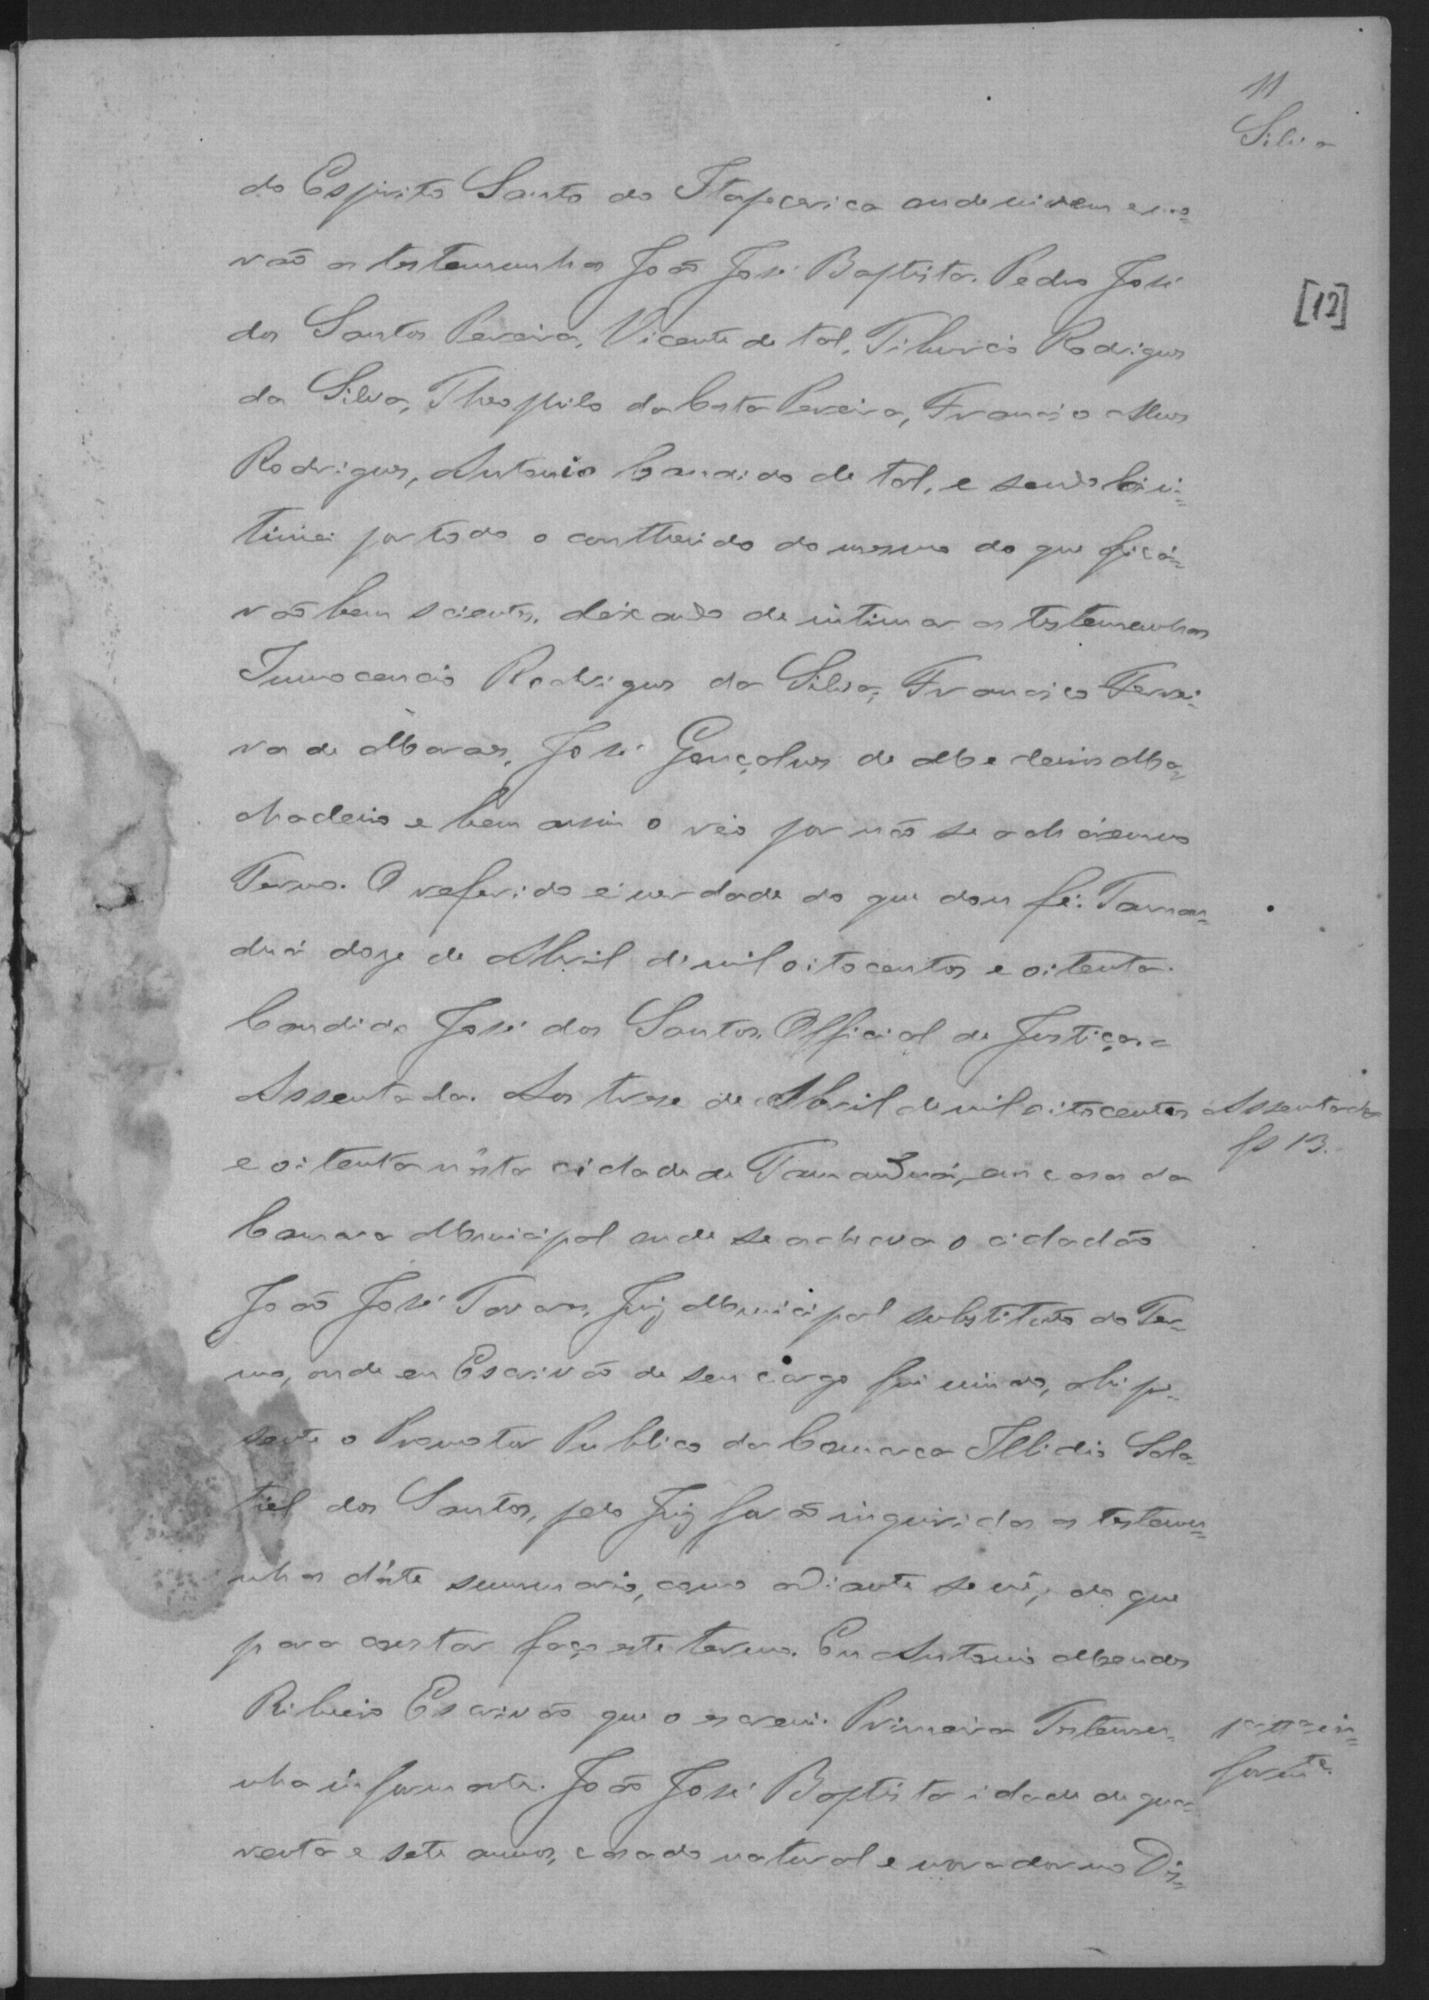 11
Silva
do Espirito Santo do Itapecerica onde vivem e mo=
[12]
rão as testemunhas João José Baptista, Pedro José
dos Santos Pereira, Vicente de tal, Tiburcio Rodrigues
da Silva, Theophilo da Costa Pereira, Francisco Alves
Rodrigues, Antonio Candido de tal, e sendo ahi in=
timei por todo o contheudo do mesmo do que ficá=
rão bem scientes, deixando de intimar as testemunhas
Innocencio Rodrigues da Silva, Francisco Ferrei=
ra de Moraes, José Gonçalves de Medeiros Ma=
chadeiro e bem assim o réo por não se acharem no
Termo. O referido é verdade do que dou fé. Taman=
duá doze de Abril de mil oitocentos e oitenta.
Candido José dos Santos, Official de Justiça. =
Assentada. Aos treze de Abril de mil oitocentos
Assentada
fs 13.
e oitenta n'esta cidade de Tamanduá, em casa da
Camara Municipal onde se achava o cidadão
João José Tavares, Juiz Municipal substituto do Ter=
mo, onde eu Escrivão de seu cargo fui vindo, ahi pre=
sente o Promotor Publico da Comarca Illidio Sala=
tiel dos Santos, pelo Juiz forão inquiridas as testemu=
nhas d'éste summario, como adiante se vê, do que
para constar faço este termo. Eu Antonio Mendes
Ribeiro Escrivão que o escrevi. Primeira Testemu=
1ª ttª in=
nha informante. João José Baptista idade de qua=
formte.
renta e sete annos, casado natural e morador no Dis=